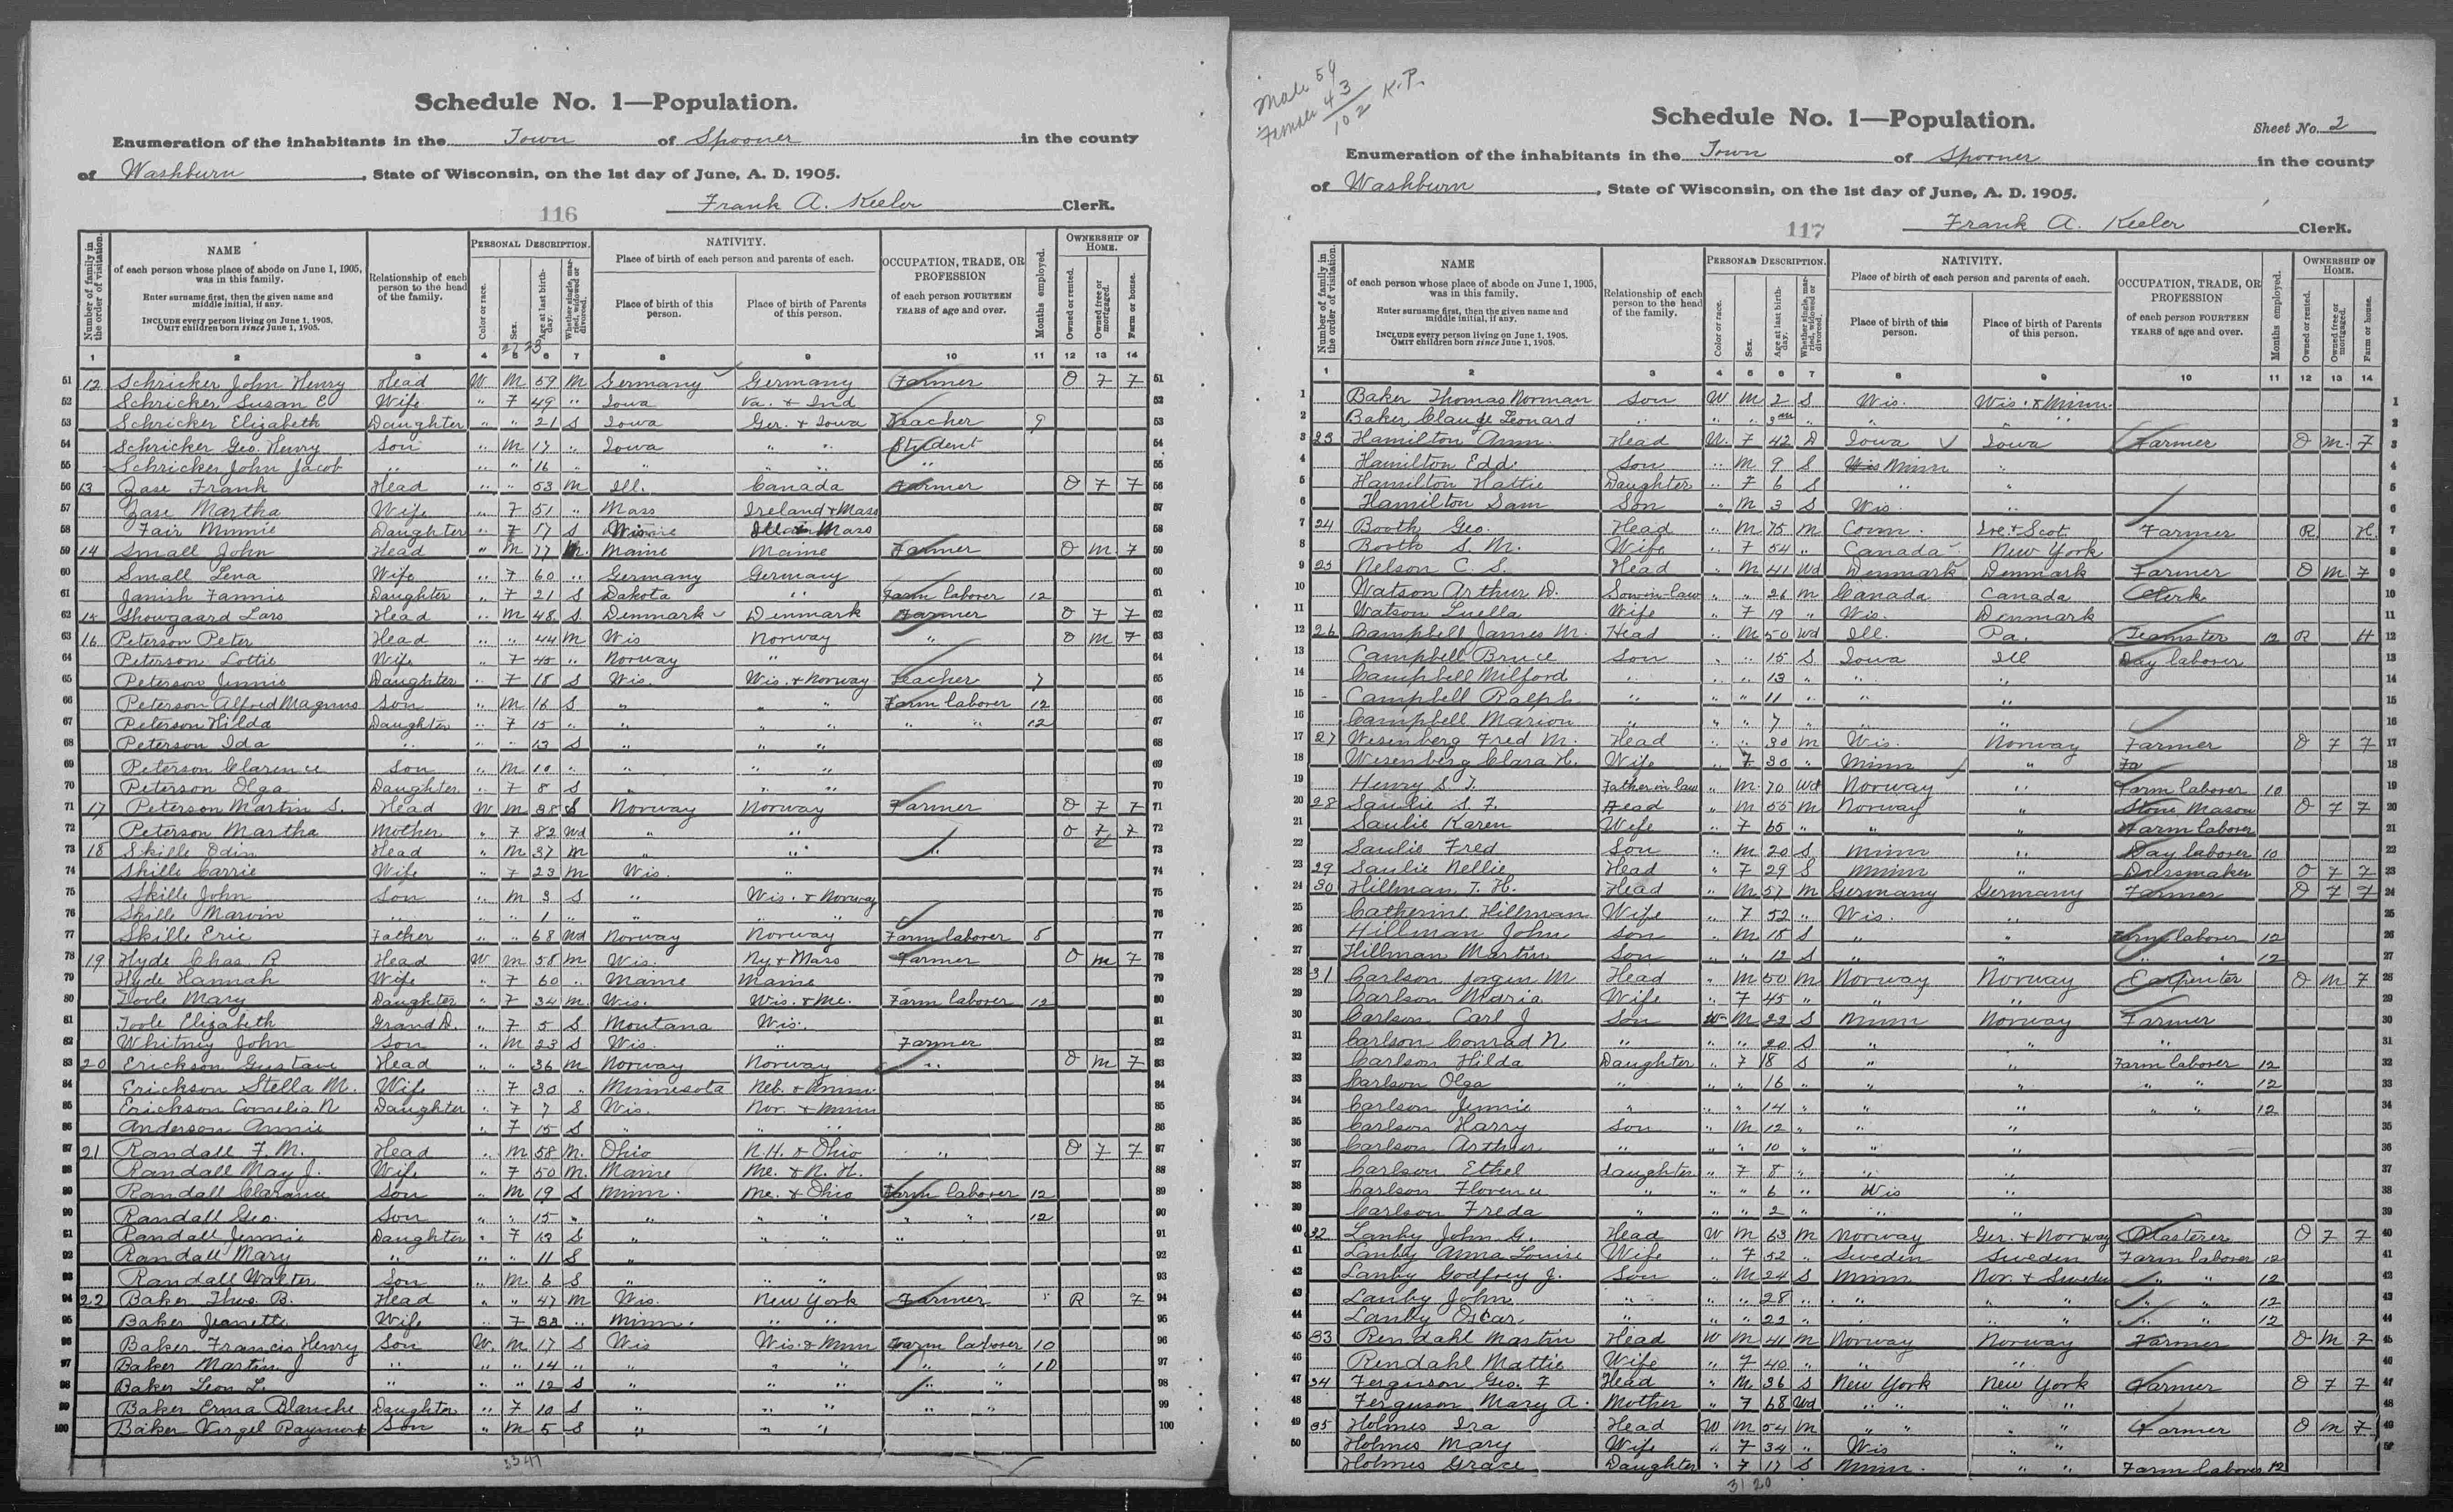 Schedule No. 1—Population.
Enumeration of the inhabitants in the Town of Spooner in the county
of Washburn, State of Wisconsin, on the 1st day of June, A. D. 1905.
116 Frank A. Keeler Clerk.
Number of family in the order of visitation.
NAME
of each person whose place of abode on June 1, 1905, was in this family.
Enter surname first, then the given name and middle initial, if any.
INCLUDE every person living on June 1, 1905.
OMIT children born since June 1, 1905.
Relationship of each person to the head of the family.
PERSONAL DESCRIPTION.
Color or race.
Sex.
Age at last birthday.
Whether single, married, widowed or divorced.
NATIVITY.
Place of birth of each person and parents of each.
Place of birth of this person.
Place of birth of Parents of this person.
OCCUPATION, TRADE, OR PROFESSION
of each person FOURTEEN YEARS of age and over.
Months employed.
OWNERSHIP OF HOME.
Owned or rented.
Owned free or mortgaged.
Farm or house.
1 2 3 4 5 6 7 8 9 10 11 12 13 14
51 12 Schricker John Henry Head W M 59 M Germany Germany Farmer O F F 51
52 Schricker Susan E Wife " F 49 " Iowa Va. & Ind 52
53 Schricker Elizabeth Daughter " " 21 S Iowa Ger. & Iowa Teacher 9 53
54 Schricker Geo. Henry Son " M 17 " Iowa " " Student 54
55 Schricker John Jacob " " " 16 " " " " " 55
56 13 Zase Frank Head " " 53 M Ill. Canada Farmer O F F 56
57 Zase Martha Wife " F 51 " Mass Ireland & Mass 57
58 Fair Minnie Daughter " F 17 S Wis Ill & Mass 58
59 14 Small John Head " M 77 M. Maine Maine Farmer O M F 59
60 Small Lena Wife " F 60 " Germany Germany 60
61 Janish Fannie Daughter " F 21 S Dakota " Farm laborer 12 61
62 15 Showgaard Lars Head " M 48 S. Denmark Denmark Farmer O F F 62
63 16 Peterson Peter Head " " 44 M Wis Norway " O M F 63
64 Peterson Lottie Wife " F 45 " Norway " 64
65 Peterson Jennie Daughter " F 18 S Wis. Wis. & Norway Teacher 7 65
66 Peterson Alfred Magnus Son " M 16 S " " " Farm laborer 12 66
67 Peterson Hilda Daughter " F 15 " " " " " " 12 67
68 Peterson Ida " " " 13 S " " " 68
69 Peterson Clarence Son " M 10 " " " " 69
70 Peterson Olga Daughter " F 8 S " " " 70
71 17 Peterson Martin S. Head W M 38 S Norway Norway Farmer O F F 71
72 Peterson Martha Mother " F 82 Wd " " O F F 72
73 18 Skille Odin Head " M 37 M " " " 73
74 Skille Carrie Wife " F 23 M Wis. " 74
75 Skille John Son " M 3 S " Wis. & Norway 75
76 Skille Marvin " " " 1 " " " " 76
77 Skille Eric Father " " 68 Wd Norway Norway Farm laborer 5 77
78 19 Hyde Chas. R Head W M 58 M Wis. Ny & Mass Farmer O M F 78
79 Hyde Hannah Wife " F 60 " Maine Maine 79
80 Toole Mary Daughter " F 34 M. Wis. Wis. & Me. Farm laborer 12 80
81 Toole Elizabeth Grand D. " F 5 S Montana Wis. 81
82 Whitney John Son " M 23 S Wis. " Farmer 82
83 20 Erickson Gustave Head " " 36 M Norway Norway " O M F 83
84 Erickson Stella M. Wife " F 30 " Minnesota Neb. & Minn. 84
85 Erickson Cornelia N Daughter " F 7 S Wis. Nor. & Minn 85
86 Anderson Annie " F 15 S " " " 86
87 21 Randall F. M. Head " M 58 M. Ohio N.H. & Ohio " O F F 87
88 Randall May J. Wife " F 50 M. Maine Me. & N. H. 88
89 Randall Clarance Son " M 19 S Minn. Me. & Ohio Farm laborer 12 89
90 Randall Geo. Son " " 15 " " " " " " 12 90
91 Randall Jennie Daughter " F 13 S " " " " 91
92 Randall Mary " " " 11 S " 92
93 Randall Walter Son " M 6 S " " " 93
94 22 Baker Thos. B. Head " " 47 M Wis. New York Farmer R F 94
95 Baker Jeanette Wife " F 38 " Minn. " " 95
96 Baker Francis Henry Son W. M 17 S Wis Wis. & Minn Farm laborer 10 96
97 Baker Martin J " " " 14 " " " " " " 10 97
98 Baker Leon L. " " " 12 S " " " " " 98
99 Baker Erma Blanche Daughter " F 10 S " " " " " 99
100 Baker Virgel Raymort Son " M 5 S " " " 100
3347
Male 59
Female 43
102 K.P.
Schedule No. 1—Population.
Sheet No. 2
Enumeration of the inhabitants in the Town of Spooner in the county
of Washburn, State of Wisconsin, on the 1st day of June, A. D. 1905.
117 Frank A. Keeler Clerk.
Number of family in the order of visitation.
NAME
of each person whose place of abode on June 1, 1905, was in this family.
Enter surname first, then the given name and middle initial, if any.
INCLUDE every person living on June 1, 1905.
OMIT children born since June 1, 1905.
Relationship of each person to the head of the family.
PERSONAL DESCRIPTION.
Color or race.
Sex.
Age at last birthday.
Whether single, married, widowed or divorced.
NATIVITY.
Place of birth of each person and parents of each.
Place of birth of this person.
Place of birth of Parents of this person.
OCCUPATION, TRADE, OR PROFESSION
of each person FOURTEEN YEARS of age and over.
Months employed.
OWNERSHIP OF HOME.
Owned or rented.
Owned free or mortgaged.
Farm or house.
1 2 3 4 5 6 7 8 9 10 11 12 13 14
1 Baker Thomas Norman Son W M 2 S Wis. Wis. & Minn. 1
2 Baker Claude Leonard " " " " " " " 2
3 23 Hamilton Ann. Head W. F 42 D Iowa Iowa Farmer O M. F 3
4 Hamilton Edd. Son " M 9 S Wis Minn " 4
5 Hamilton Hattie Daughter " F 6 S " " 5
6 Hamilton Sam Son " M 3 S Wis " 6
7 24 Booth Geo. Head " M 75 M Conn. Ire. & Scot. Farmer R H. 7
8 Booth S. M. Wife " F 54 " Canada New York 8
9 25 Nelson C. S. Head " M 41 Wd Denmark Denmark Farmer O M F 9
10 Watson Arthur D. Son in law " " 26 M Canada Canada Clerk 10
11 Watson Luella Wife " F 19 " Wis. Denmark 11
12 26 Campbell James M. Head " M 50 Wd Ill. Pa. Teamster 12 R H 12
13 Campbell Bruce Son " " 15 S Iowa Ill Day laborer 13
14 Campbell Milford " " " 13 " " " 14
15 Campbell Ralph " " " 11 " " " 15
16 Campbell Marion " " " 7 " " " 16
17 27 Wesenberg Fred M. Head " " 30 M Wis. Norway Farmer O F F 17
18 Wesenberg Clara H. Wife " F 30 " Minn " Fa 18
19 Henry S. T. Father in law " M 70 Wd Norway " Farm laborer 10 19
20 28 Saulie S. F. Head " M 55 M Norway " Stone Mason O F F 20
21 Saulie Karen Wife " F 65 " " " Farm laborer 21
22 Saulie Fred Son " M 20 S Minn " Day laborer 10 22
23 29 Saulie Nellie Head " F 29 S Minn " Dressmaker O F F 23
24 30 Hillman T. H. Head " M 57 M Germany Germany Farmer O F F 24
25 Catherine Hillman Wife " F 52 " Wis. " 25
26 Hillman John Son " M 15 S " " Farm laborer 12 26
27 Hillman Martin Son " " 12 S " " " " 12 27
28 31 Carlson Jorgen M Head " M 50 M Norway Norway Carpenter O M F 28
29 Carlson Maria Wife " F 45 " " " 29
30 Carlson Carl J Son W M 22 S Minn Norway Farmer 30
31 Carlson Conrad N. " " " 20 S " " " 31
32 Carlson Hilda Daughter " F 18 S " " Farm laborer 12 32
33 Carlson Olga " " " 16 " " " " " 12 33
34 Carlson Jennie " " " 14 " " " " " 12 34
35 Carlson Harry Son " M 12 " " " 35
36 Carlson Arthur " " " 10 " " " 36
37 Carlson Ethel daughter " F 8 " " " 37
38 Carlson Florence " " " 6 " Wis " 38
39 Carlson Freda " " " 2 " " " 39
40 32 Lanby John G. Head W M 63 M Norway Ger. & Norway Plasterer O F F 40
41 Lanby Anna Louise Wife " F 52 " Sweden Sweden Farm laborer 12 41
42 Lanby Godfrey J. Son " M 24 S Minn Nor. & Sweden " " 12 42
43 Lanby John " " " 28 " " " " " " 12 43
44 Lanby Oscar " " " 22 " " " " " " 12 44
45 33 Rendahl Martin Head W M 41 M Norway Norway Farmer O M F 45
46 Rendahl Mattie Wife " F 40 " " " 46
47 34 Ferguson Geo. F Head " M. 36 S New York New York Farmer O F F 47
48 Ferguson Mary A. Mother " F 68 Wd " " " " 48
49 35 Holmes Ira Head W M 54 M " " " " Farmer O M F 49
50 Holmes Mary Wife " F 34 " Wis " " 50
Holmes Grace Daughter " F 17 S Minn. " " Farm laborer 12
3120